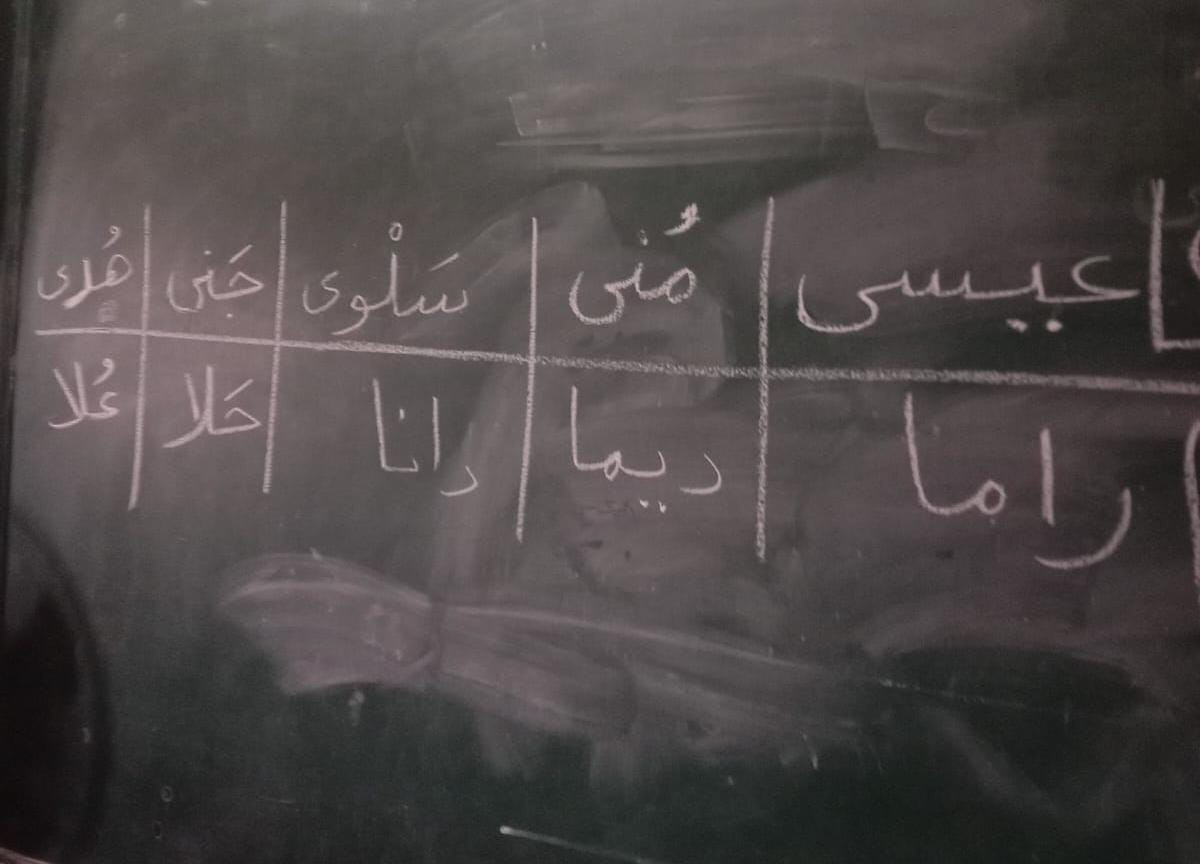 عيسى مُنى سَلْوى جَنى هُدى
راما ريما رانا حَلا عُلا